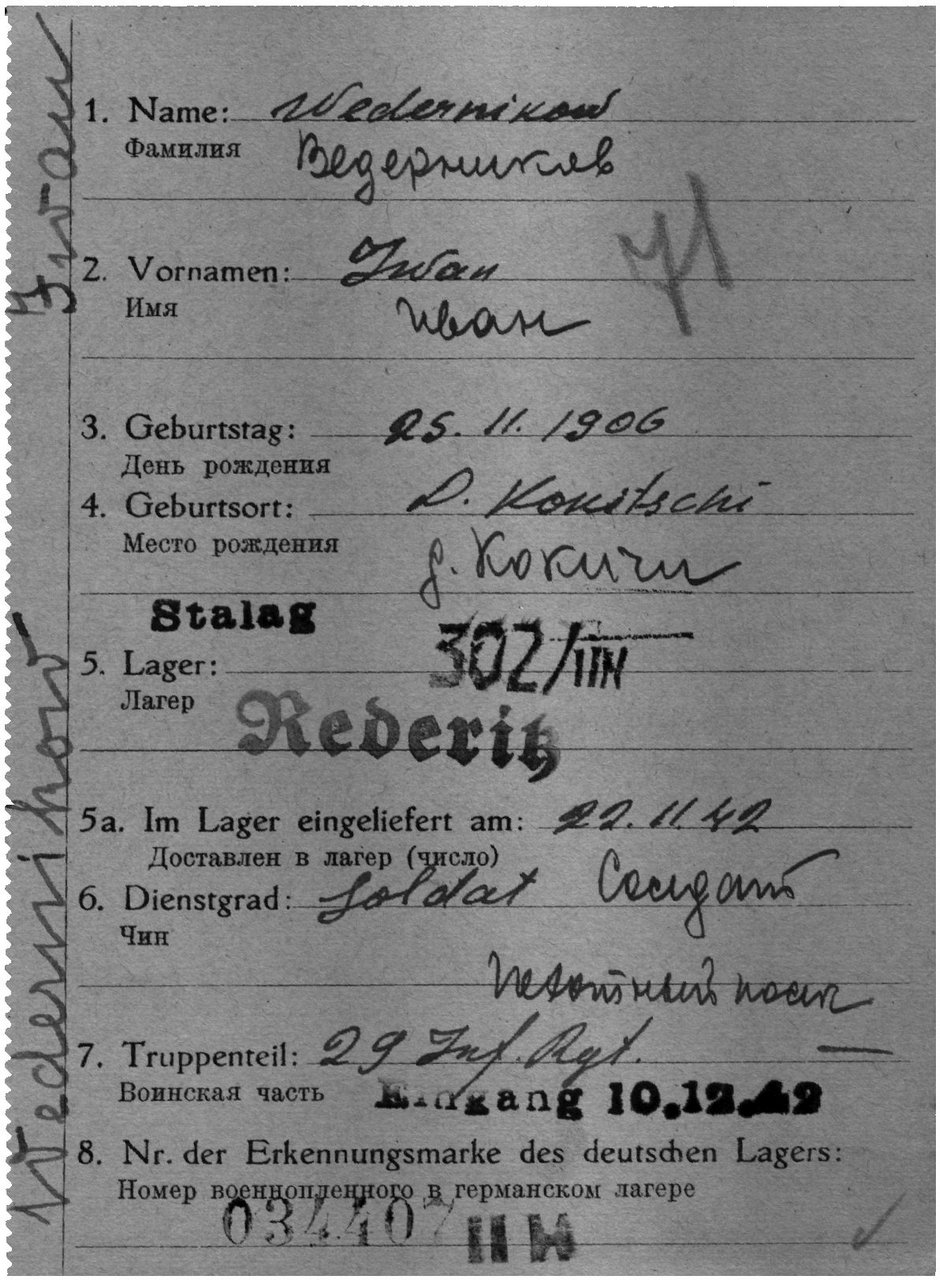 Wedernikow Iwan
1. Name: Wedernikow
Фамилия Ведерников
2. Vornamen: Iwan
Имя Иван
71
3. Geburtstag: 25. 11. 1906
День рождения
4. Geburtsort: D. Kokitschi
Место рождения д. Кокичи
Stalag
5. Lager: 302/IIH
Лагер
Rederitz
5a. Im Lager eingeliefert am: 22. 11. 42
Доставлен в лагер (число)
6. Dienstgrad: Soldat Солдат
Чин
7. Truppenteil: 29 Inf. Rgt. —
Воинская часть Eingang 10.12.42
8. Nr. der Erkennungsmarke des deutschen Lagers:
Номер военнопленного в германском лагере
034407 II H